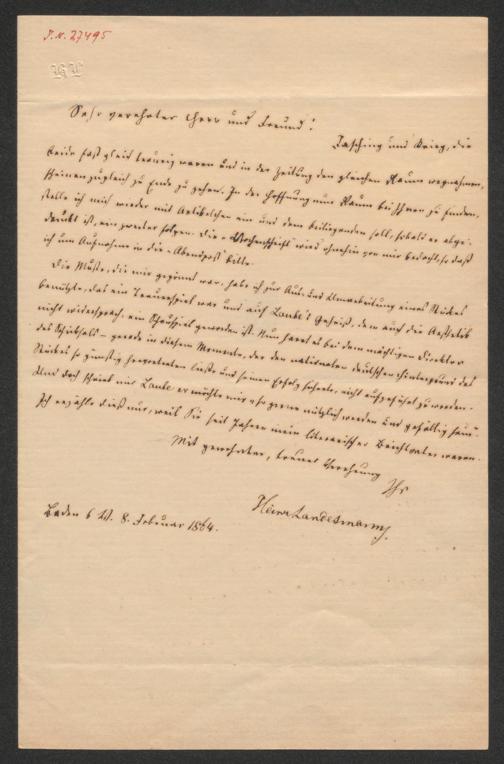 J. N. 27495
Sehr verehrter Herr und Freund!
Fasching und Krieg, die
beide fast gleich traurig waren und in der Zeitung den gleichen Raum wegnahmen,
scheinen zugleich zu Ende zu gehen. In der Hoffnung nun Raum bei Ihnen zu finden,
stelle ich mich wieder mit Artikelchen ein und dem beiliegenden soll, sobald er abge-
druckt ist, ein zweiter folgen. Die Wochenschrift wird ohnehin von mir bedacht, so daß
ich um Aufnahme in die Abendpost bitte.
Die Muße, die mir gegönnt war, habe ich zur Aus- und Umarbeitung eines Stückes
benützt, das ein Trauerspiel war und auf Laube's Geheiß, dem auch die Aesthetik
nicht widersprach, ein Schauspiel geworden ist. Nun harrt es bei dem mächtigen Direktor
des Schicksals – gerade in diesem Momente, der den nationalen deutschen Hintergrund des
Stückes so günstig hervortreten ließe und seinen Erfolg sicherte, nicht aufgeführt zu werden.
Und doch scheint mir Laube er möchte mir so gerne nützlich werden und gefällig sein.
Ich erzähle dieß nur, weil Sie seit Jahren mein literarischer Beichtvater waren.
Mit gewohnter, treuer Verehrung
Ihr
Heinr. Landesmann
Baden b. W. 8. Februar 1864.